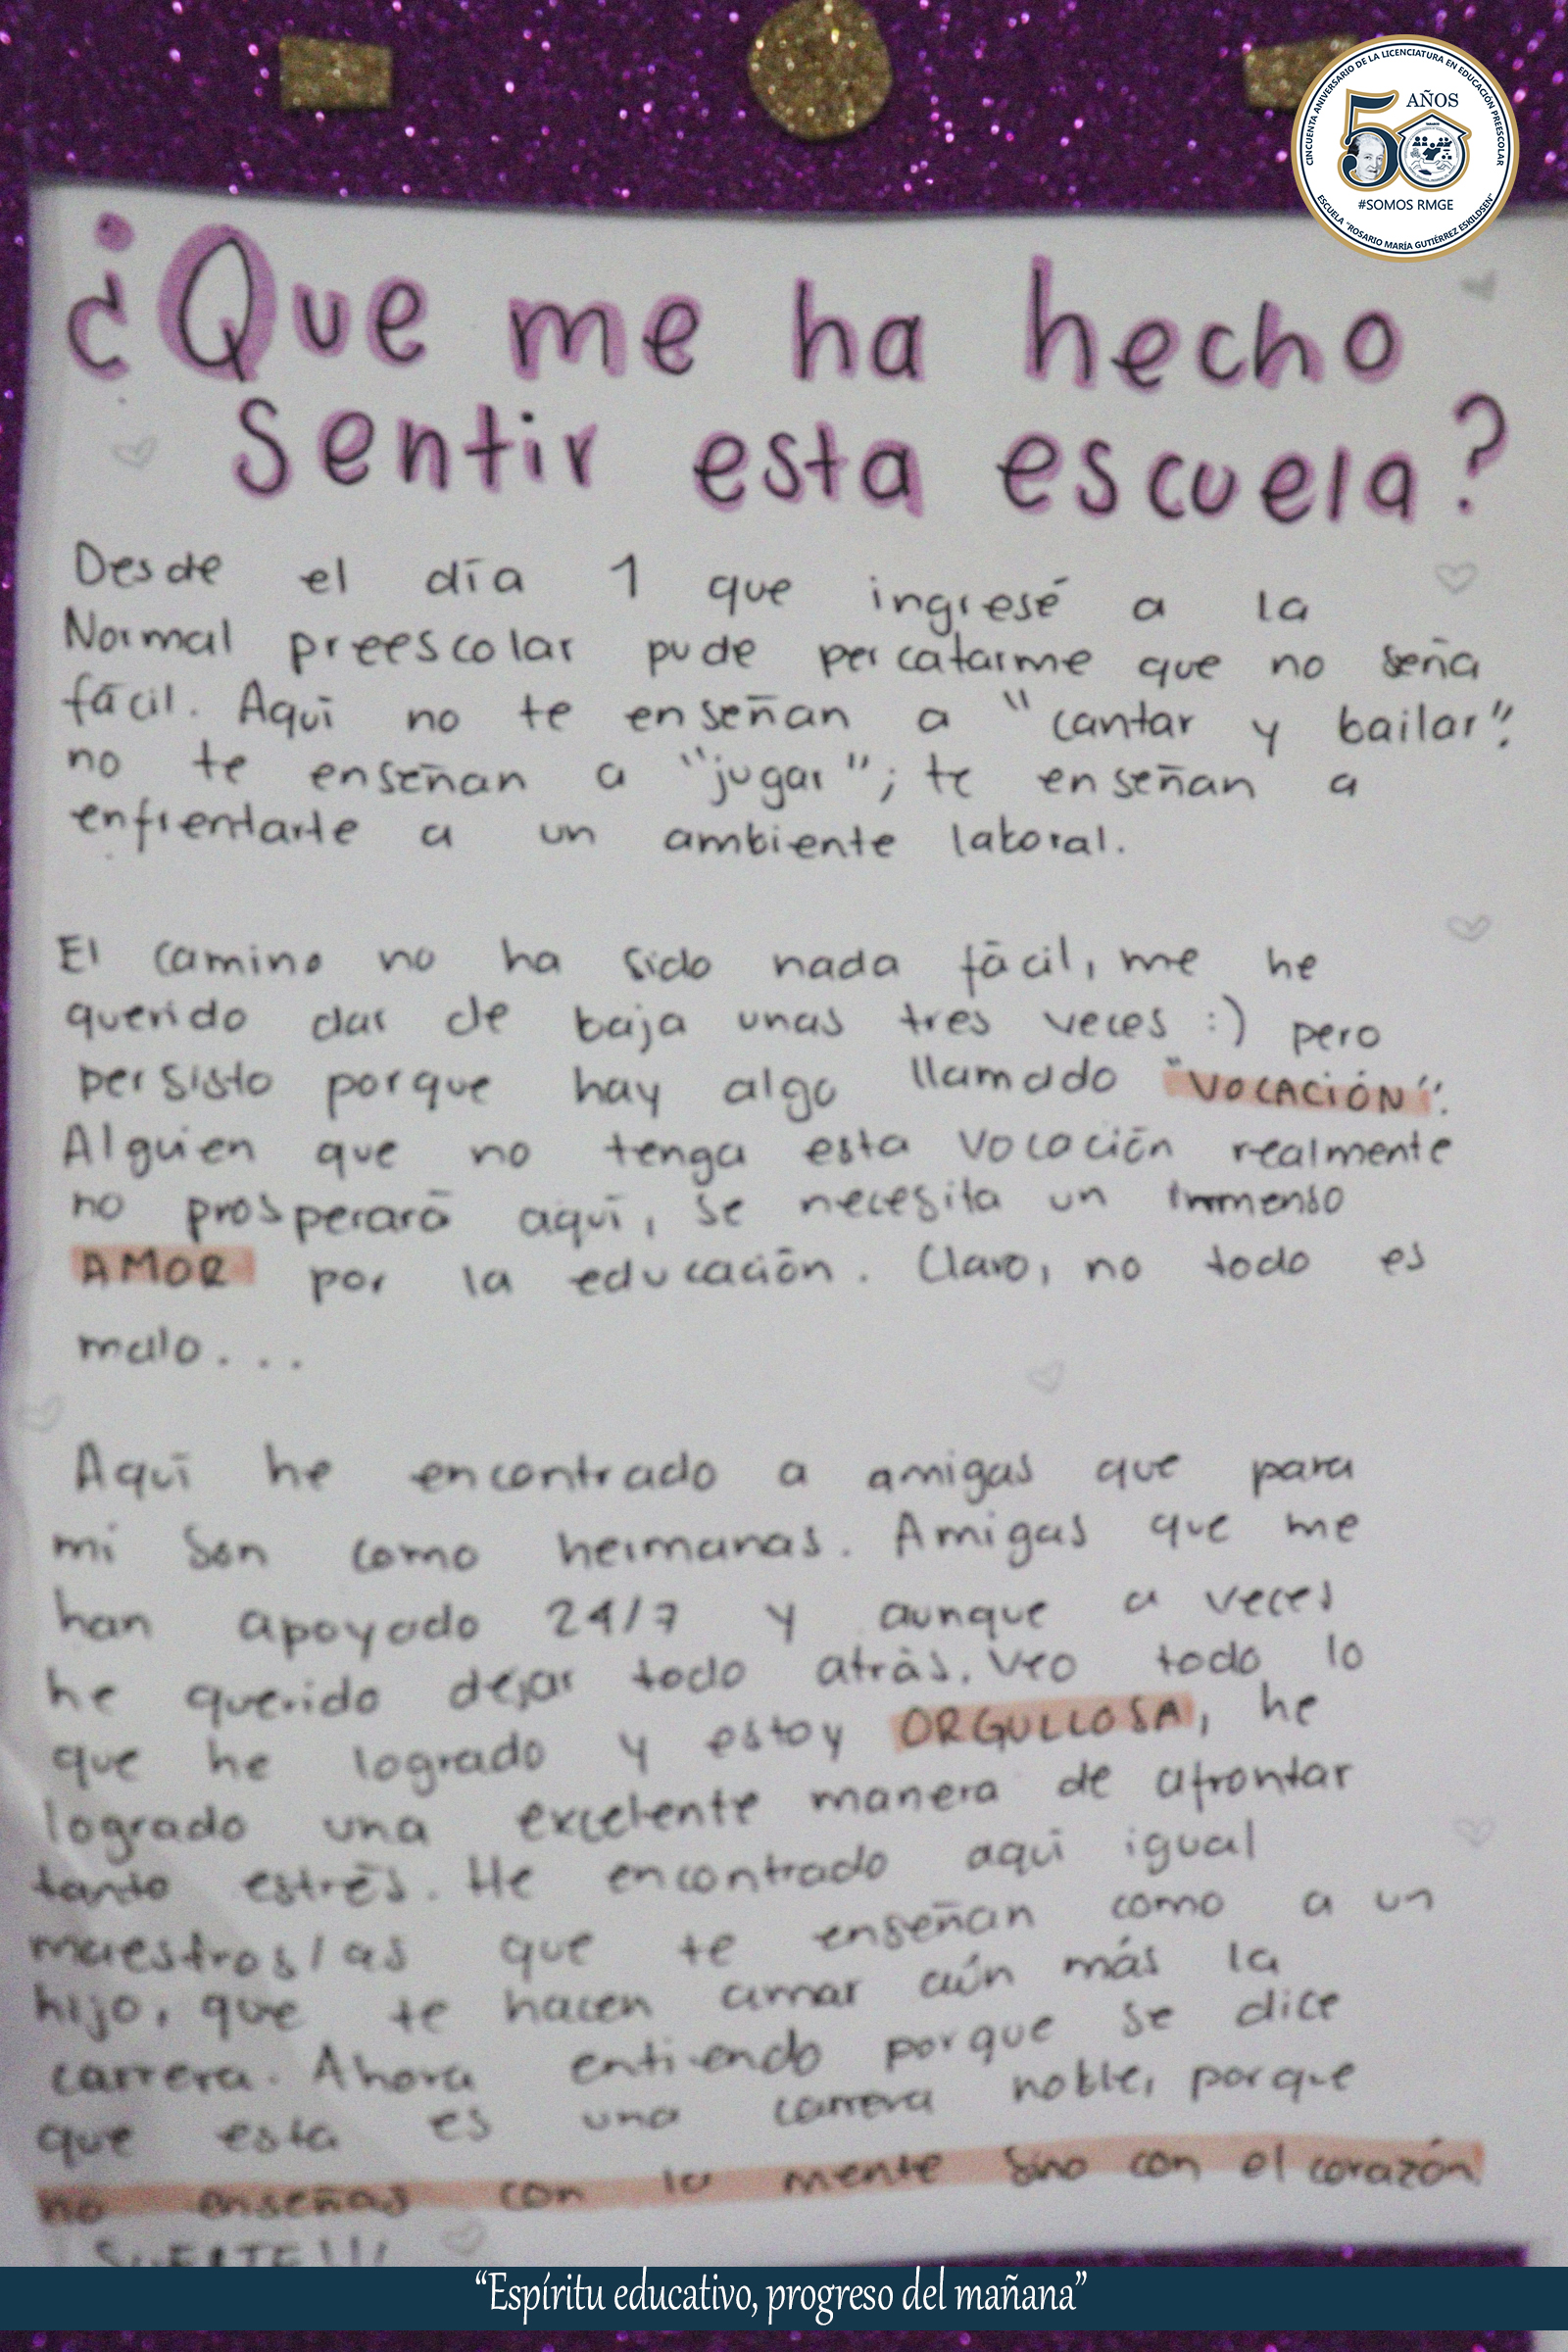 CINCUENTA ANIVERSARIO DE LA LICENCIATURA EN EDUCACIÓN PREESCOLAR
50 AÑOS
#SOMOS RMGE
ESCUELA "ROSARIO MARÍA GUTIÉRREZ ESKILDSEN"
¿Que me ha hecho
Sentir esta escuela?
Desde el día 1 que ingresé a la
Normal preescolar pude percatarme que no seria
fácil. Aquí no te enseñan a "cantar y bailar",
no te enseñan a "jugar"; te enseñan a
enfrentarte a un ambiente laboral.
El camino no ha sido nada fácil, me he
querido dar de baja unas tres veces :) pero
persisto porque hay algo llamado "VOCACIÓN".
Alguien que no tenga esta vocación realmente
no prosperará aquí, se necesita un Inmenso
AMOR por la educación. Claro, no todo es
malo...
Aquí he encontrado a amigas que para
mi son como hermanas. Amigas que me
han apoyado 24/7 y aunque a veces
he querido dejar todo atrás. Veo todo lo
que he logrado y estoy ORGULLOSA, he
logrado una excelente manera de afrontar
tanto estrés. He encontrado aqui igual
maestros/as que te enseñan como a un
hijo, que te hacen amar aún más la
carrera. Ahora entiendo porque se dice
que esta es una carrera noble, porque
no enseñas con la mente sino con el corazón.
SUERTE!!!
“Espíritu educativo, progreso del mañana”